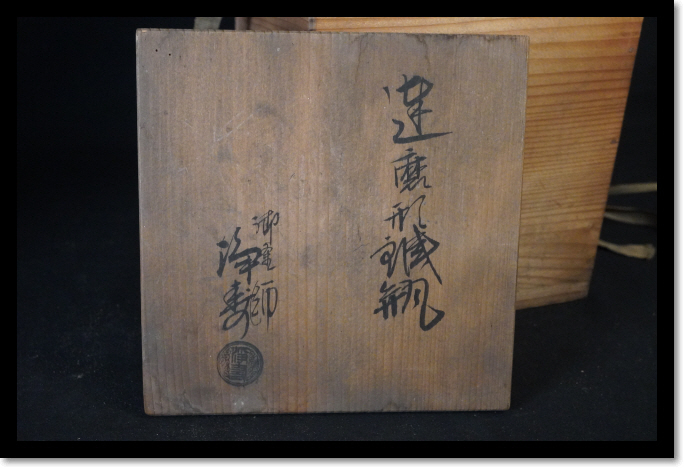 達磨形鐵瓶
御釜師
浄寿